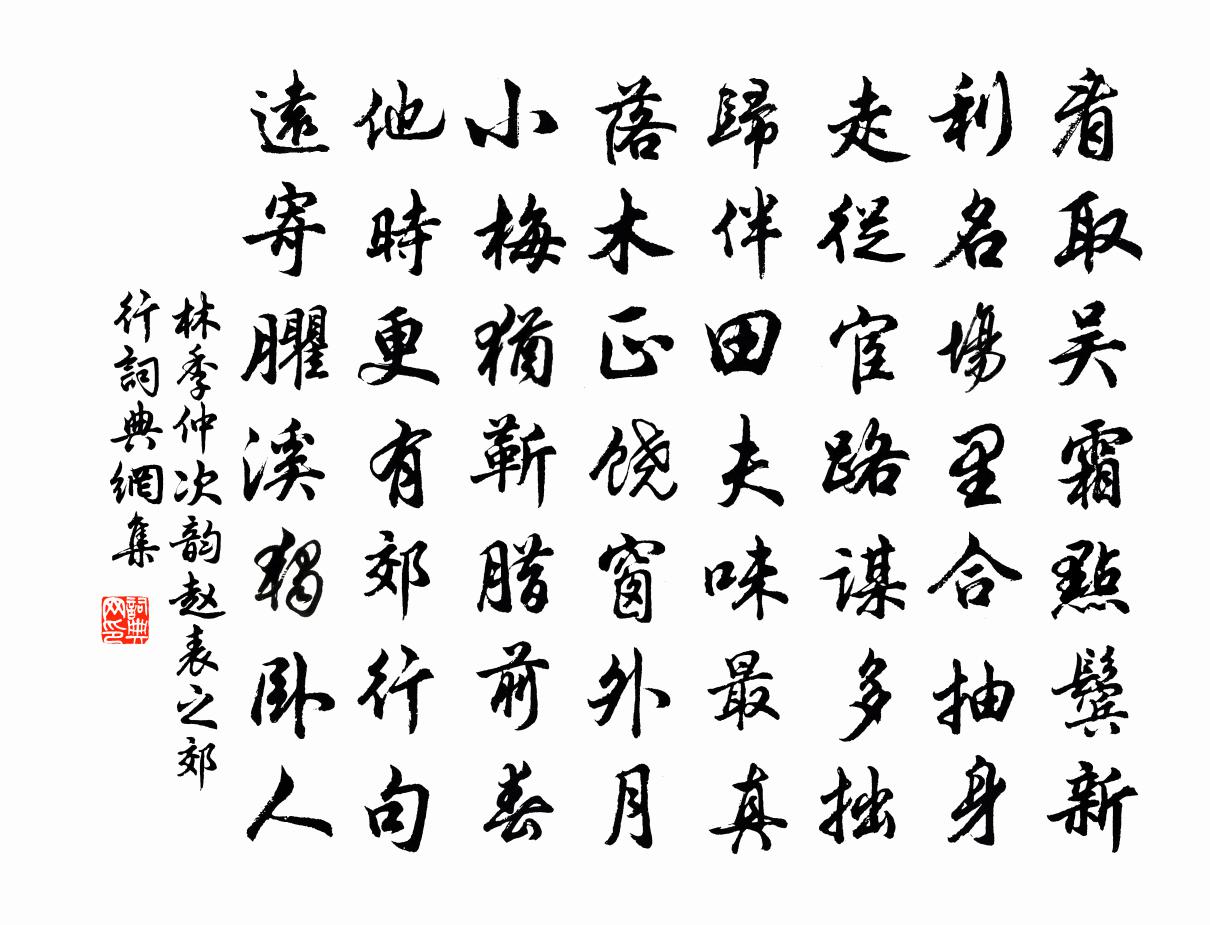 看取吴霜點鬓新
利名場里合抽身
走從宦路謀多拙
歸伴田夫味最真
落木正饶窗外月
小梅猶蕲腊前春
他時更有郊行句
遠寄臞溪獨卧人
林季仲次韵赵表之郊
行詞典網集
詞典网印